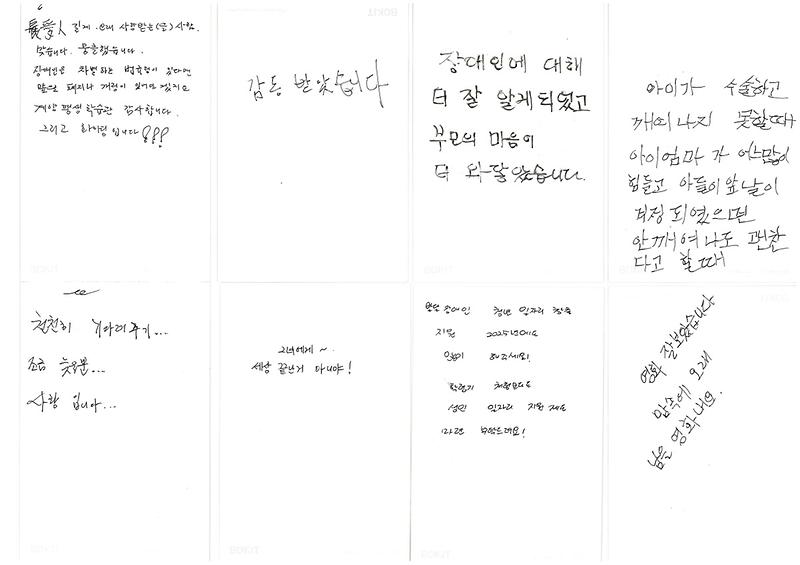 長愛人 길게 오래 사랑받는(을) 사람.
맞습니다. 뭉클했습니다.
장애인을 차별하는 법조항이 있다면
많은 폐지나 개정이 있기도 했지요
계양 평생학습관 감사합니다.
그리고 화이팅입니다
감동 받았습니다
장애인에 대해
더 잘 알게되었고
부모의 마음이
더 와닿았습니다.
아이가 수술하고
깨어나지 못할때
아이엄마가 얼마많이
힘들고 아들이앞날이
걱정되였으면
안깨여나도 괜찬
다고 할때
천천히 기다려주기...
조금 늦을뿐...
사랑 입니다...
그녀에게~
세상 끝난거 아니야!
발달장애인 청년 일자리 창출
지원 2025년에도
많이 해주세요!
학령기 치료만도
성인 일자리 지원 제도
마련 부탁드려요!
영화 잘보았습니다
맘속에 오래
남을 영화네요.
BOKIT